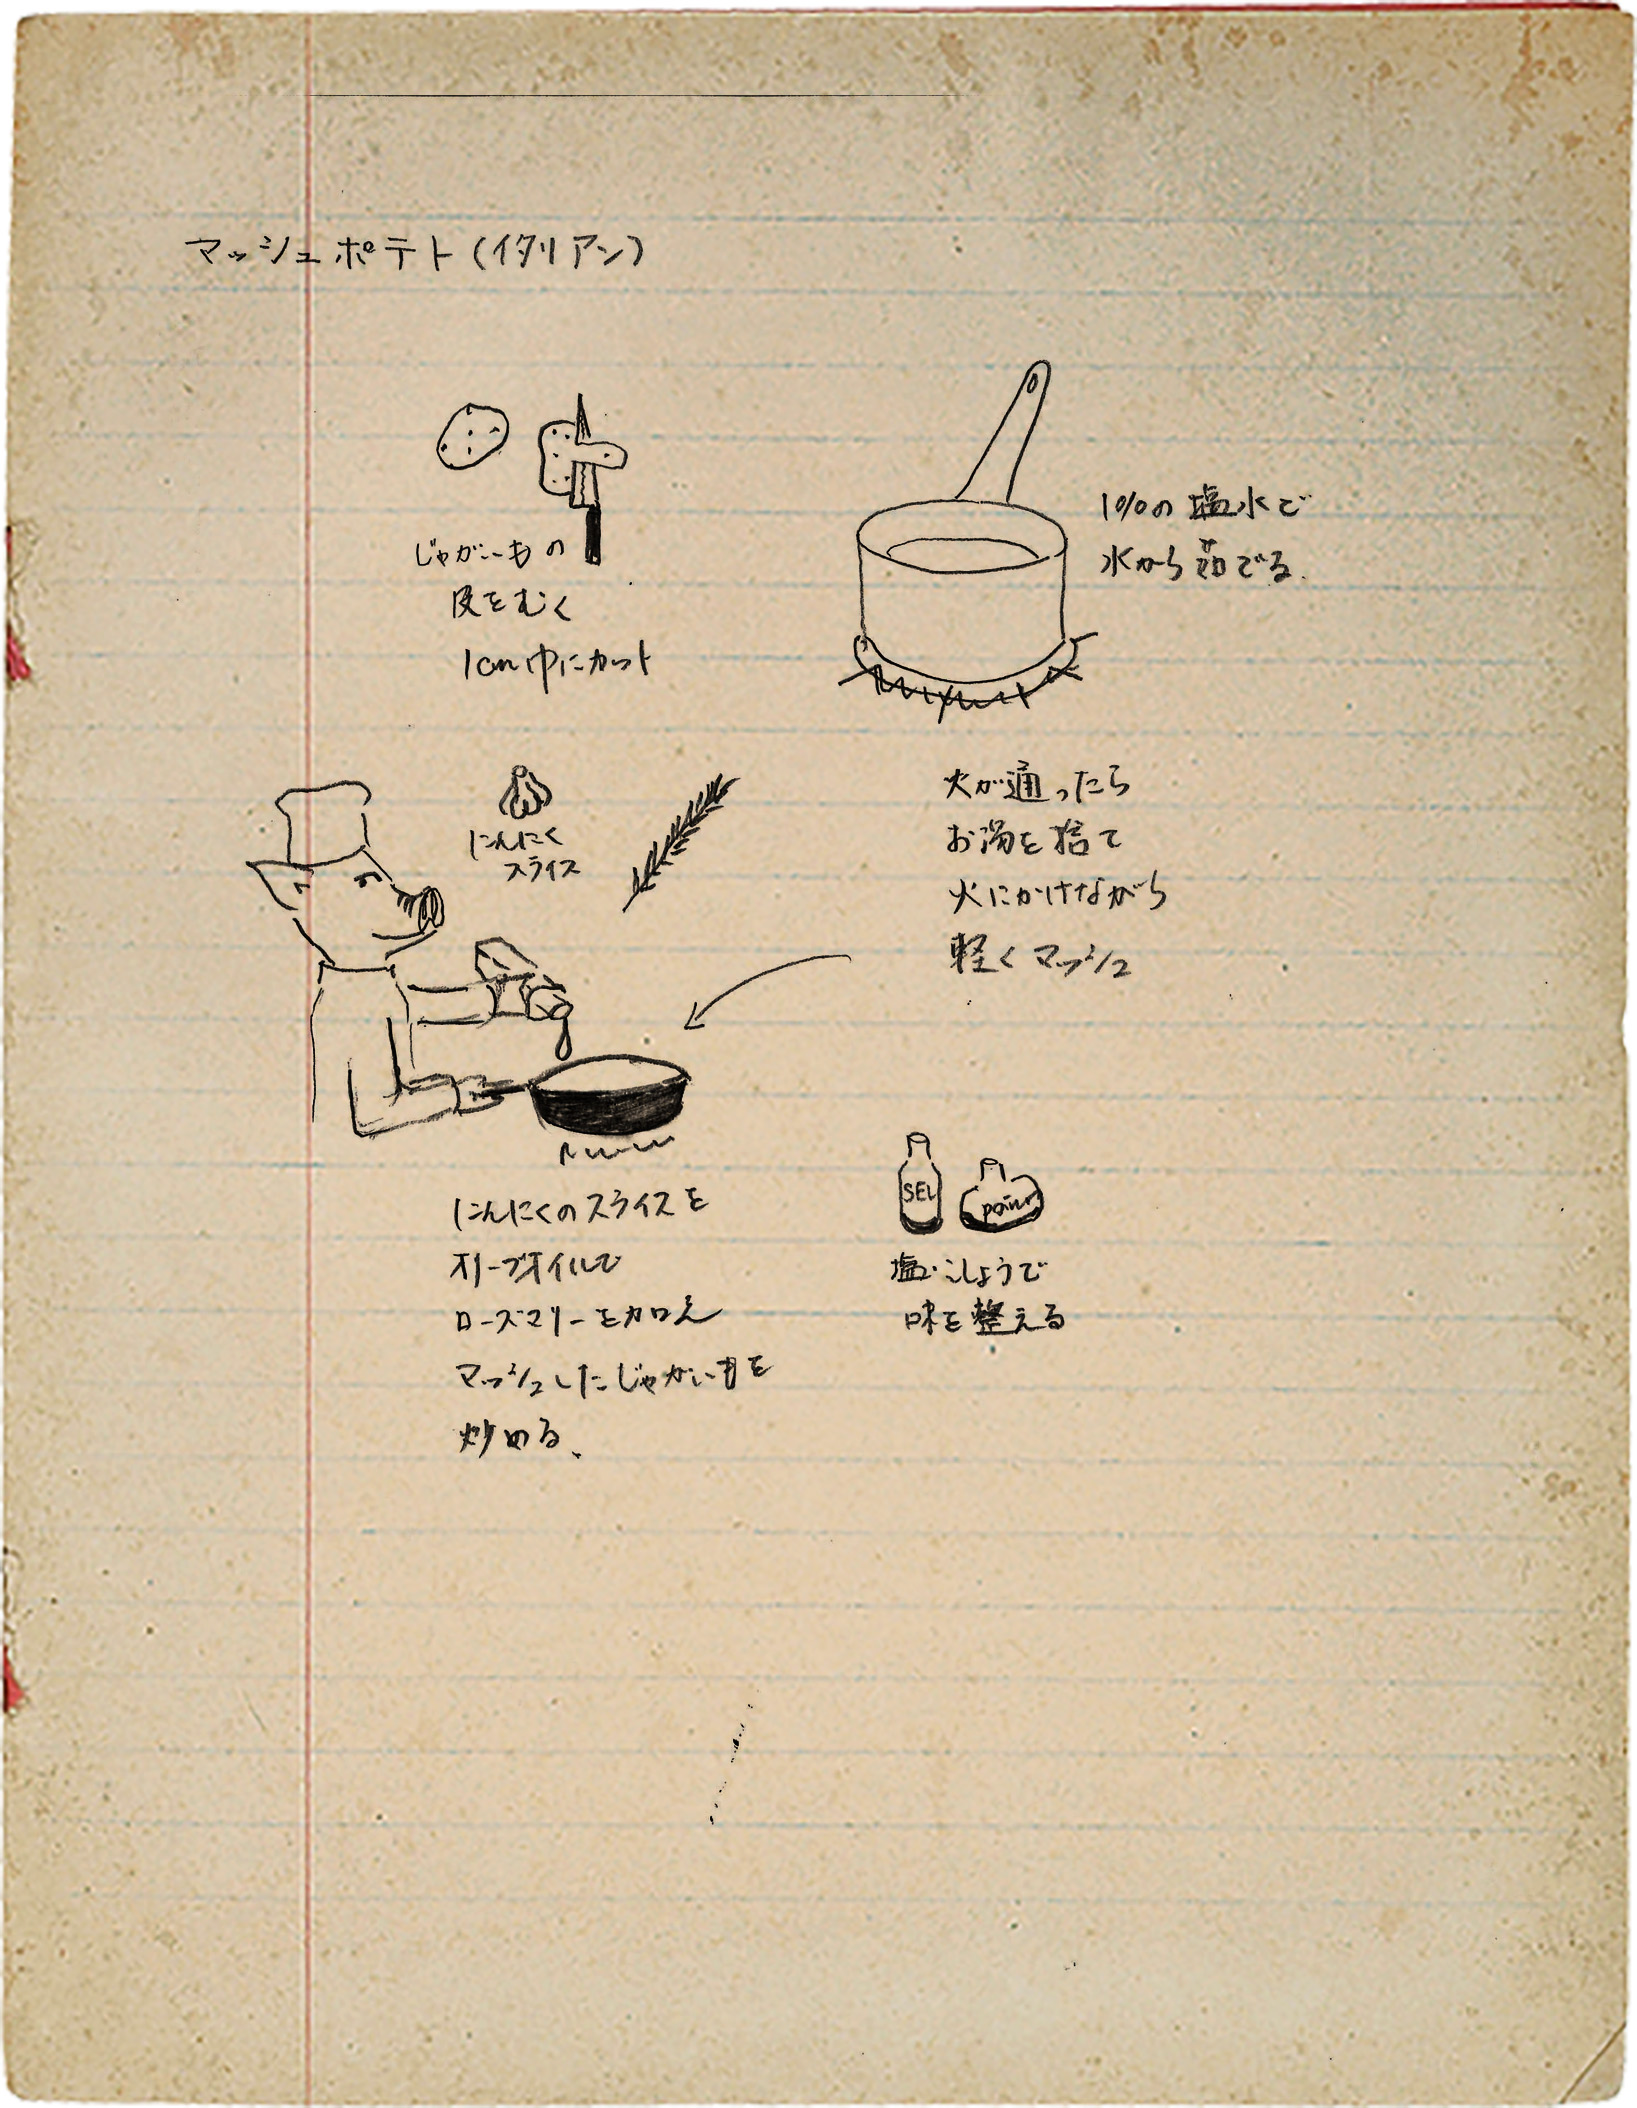 マッシュポテト(イタリアン)
じゃがいもの
皮をむく
1cm巾にカット
1%の塩水で
水から茹でる.
火が通ったら
お湯を捨て
火にかけながら
軽くマッシュ
にんにく
スライス
にんにくのスライスを
オリーブオイルで
ローズマリーを加え
マッシュしたじゃがいもを
炒める、
SEL
塩・こしょうで
味を整える